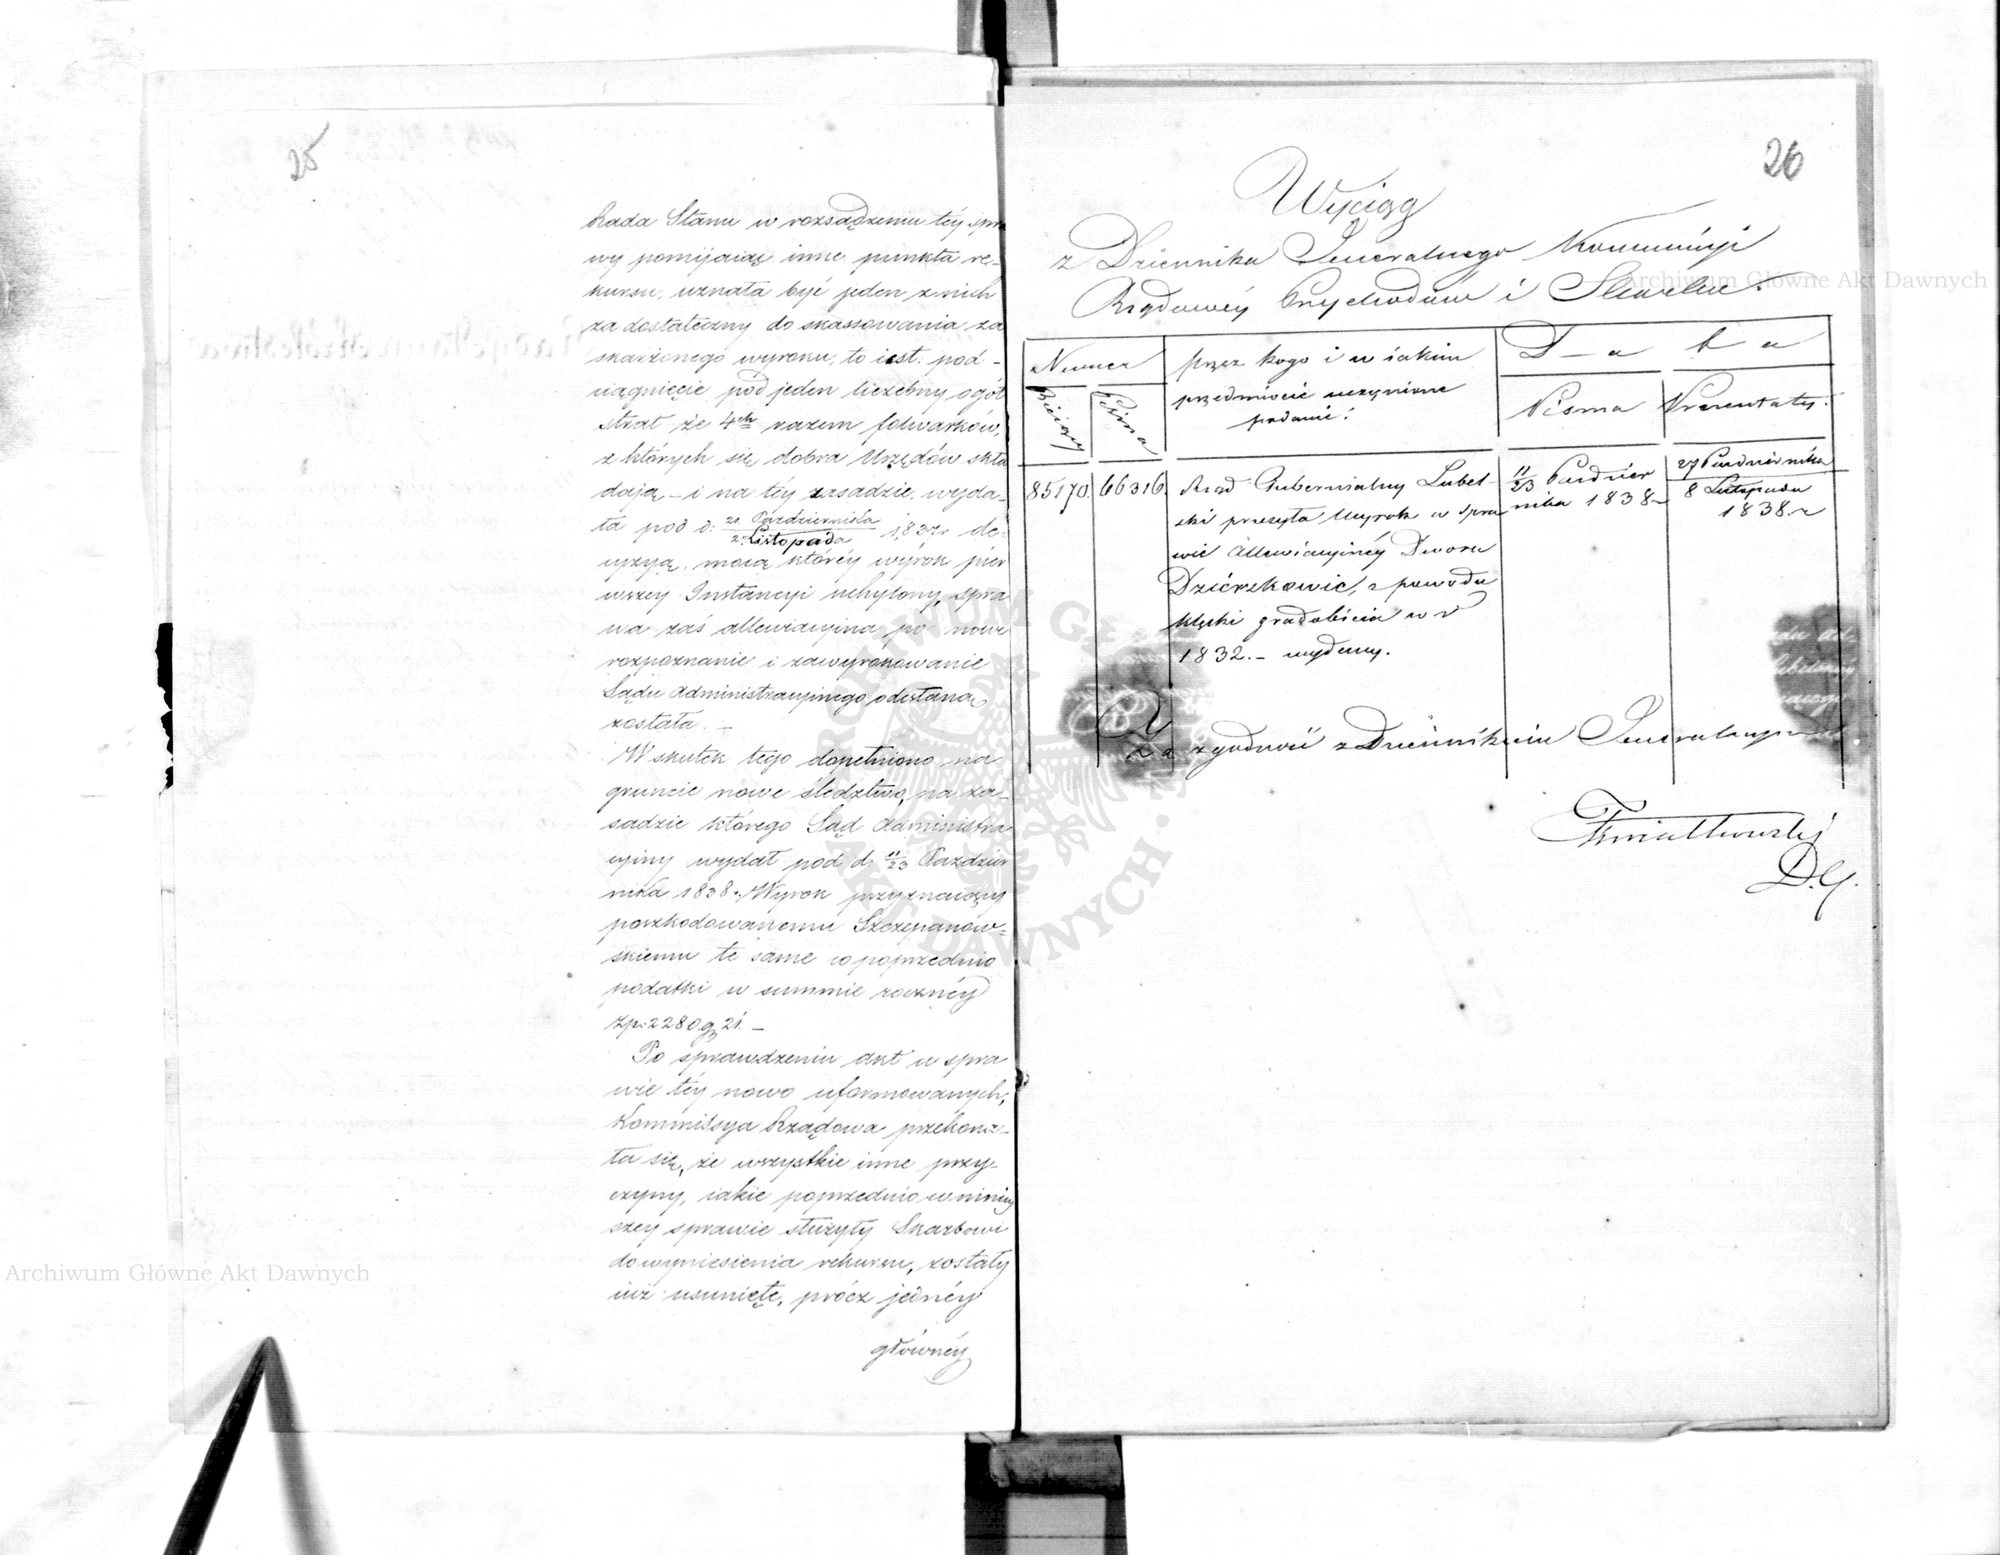 25
Rada Stanu w rozsądzeniu téy spra
wy pomijaiąc inne punkta re-
kursu, uznała być jeden z nich
za dostateczny do skassowania za
skarżonego wyroku, to iest. pod-
ciągnięcie pod jeden liczebny ogół
strat ze 4ch razem folwarków,
z których się dobra Urzędów skła
dają – i na téy zasadzie, wyda-
ła pod d: 21 Października / 2 Listopada 1837r de-
cyzyą, mocą któréy wyrok pier
wszey Instancyi uchylony, spra
wa zaś allewiacyina po nowe
rozpoznanie i zawyrokowanie
Sądu Administracyinego odesłaną
została. –
W skutek tego dopełniono na
gruncie nowe śledztwo, na za-
sadzie którego Sąd Administra
cyiny wydał pod d: 11/23 Paździer
nika 1838 r. Wyrok przyznaiący
poszkodowanemu Szczepanow-
skiemu te same co poprzednio
podatki w summie rocznéy
Zp: 2280 g 21. –
Po sprawdzeniu akt w spra
wie téy nowo uformowanych,
Kommissya Rządowa przekona-
ła się, że wszystkie inne przy-
czyny, iakie poprzednio w niniey
szey sprawie służyły Skarbowi
do wyniesienia rekursu, zostały
iuż usunięte, prócz jednéy
głównéy
26
Wyciąg
z Dziennika Generalnego Kommissyi
Rządowéy Przychodów i Skarbu.
Numer
przez kogo i w iakim
przedmiocie uczynione
podanie:
D – a t a
Bieżący
Pisma
Pisma
Prezentaty:
85170.
66316.
Rząd Gubernialny Lubel-
ski przesyła Wyrok w spra
wie Allewiacyinéy Dworu
Dzierzkowic, z powodu
klęski gradobicia w r
1832. – wydany.
11/23 Paździer
nika 1838 r
27 Października
8 Listopada
1838. r
Za zgodność z Dziennikiem Generalnym
Kwiatkowski
D. G.
Archiwum Główne Akt Dawnych
Archiwum Główne Akt Dawnych